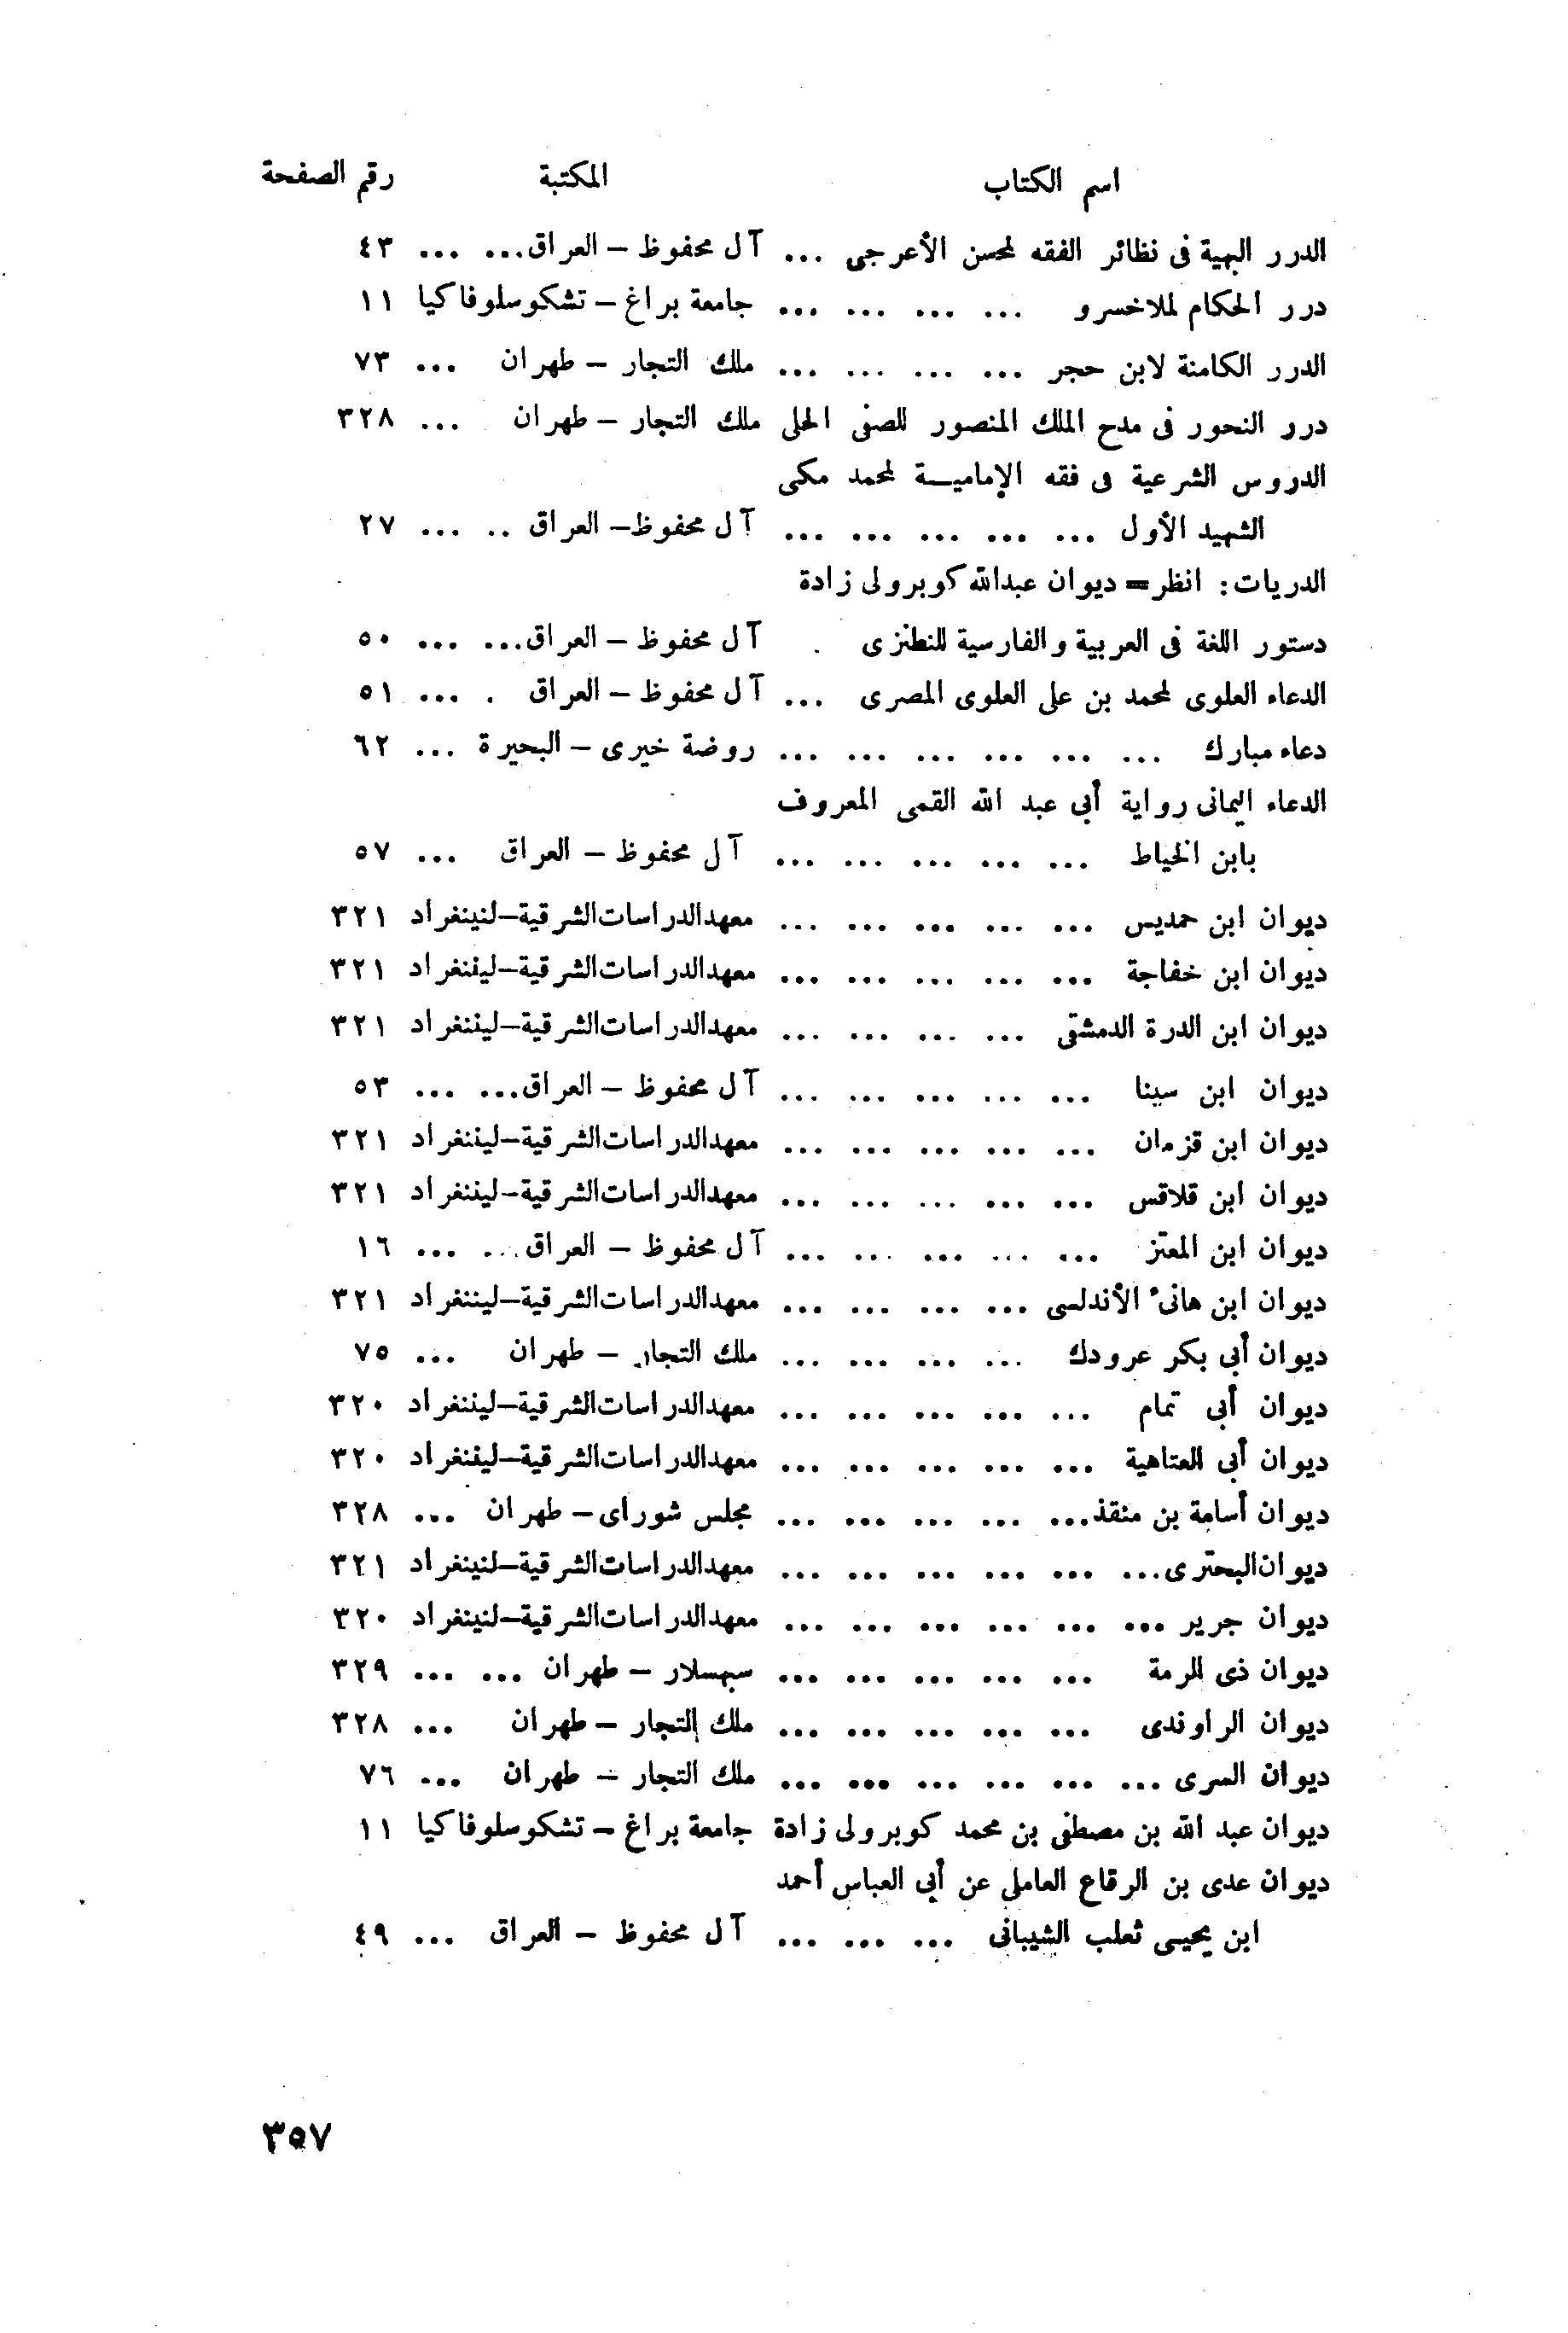 اسم الكتاب المكتبة رقم الصفحة
الدرر البهية فى نظائر الفقه لمحسن الأعرجى ... آل محفوظ – العراق... ... ٤٣
درر الحكام لملاخسرو ... ... ... ... جامعة براغ – تشكوسلوفاكيا ١١
الدرر الكامنة لابن حجر ... ... ... ... ملك التجار – طهران ... ٧٣
درر النحور فى مدح الملك المنصور للصفى الحلى ملك التجار – طهران ... ٣٢٨
الدروس الشرعية فى فقه الإمامية لمحمد مكى
الشهيد الأول ... ... ... ... ... آل محفوظ– العراق .. ... ٢٧
الدريات: انظر= ديوان عبدالله كوبرولى زادة
دستور اللغة فى العربية والفارسية للنطنزى . آل محفوظ – العراق... ... ٥٠
الدعاء العلوى لمحمد بن على العلوى المصرى ... آل محفوظ – العراق . ... ٥١
دعاء مبارك ... ... ... ... ... ... روضة خيرى – البحيرة ... ٦٢
الدعاء اليمانى رواية أبى عبد الله القمى المعروف
بابن الخياط ... ... ... ... ... آل محفوظ – العراق ... ٥٧
ديوان ابن حمديس ... ... ... ... ... معهدالدراسات الشرقية–لنينغراد ٣٢١
ديوان ابن خفاجة ... ... ... ... ... معهدالدراسات الشرقية–ليننغراد ٣٢١
ديوان ابن الدرة الدمشقى ... ... ... ... معهدالدراسات الشرقية–ليننغراد ٣٢١
ديوان ابن سينا ... ... ... ... ... آل محفوظ – العراق... ... ٥٣
ديوان ابن قزمان ... ... ... ... ... معهدالدراسات الشرقية–ليننغراد ٣٢١
ديوان ابن قلاقس ... ... ... ... ... معهدالدراسات الشرقية–ليننغراد ٣٢١
ديوان ابن المعتز ... ... ... ... ... آل محفوظ – العراق... ... ١٦
ديوان ابن هانىء الأندلسى ... ... ... ... معهدالدراسات الشرقية–ليننغراد ٣٢١
ديوان أبى بكر عرودك ... ... ... ... ملك التجار – طهران ... ٧٥
ديوان أبى تمام ... ... ... ... ... معهدالدراسات الشرقية–ليننغراد ٣٢٠
ديوان أبى العتاهية ... ... ... ... ... معهدالدراسات الشرقية–ليننغراد ٣٢٠
ديوان أسامة بن منقذ... ... ... ... ... مجلس شوراى – طهران ... ٣٢٨
ديوان البحترى... ... ... ... ... ... معهدالدراسات الشرقية–لنينغراد ٣٢١
ديوان جرير ... ... ... ... ... ... معهدالدراسات الشرقية–لنينغراد ٣٢٠
ديوان ذى الرمة ... ... ... ... ... سپهسلار – طهران ... ... ٣٢٩
ديوان الراوندى ... ... ... ... ... ملك التجار – طهران ... ٣٢٨
ديوان السرى ... ... ... ... ... ... ملك التجار – طهران ... ٧٦
ديوان عبد الله بن مصطفى بن محمد كوبرولى زادة جامعة براغ – تشكوسلوفاكيا ١١
ديوان عدى بن الرقاع العاملى عن أبى العباس أحمد
ابن يحيى ثعلب الشيبانى ... ... ... آل محفوظ – العراق ... ٤٩
٣٥٧